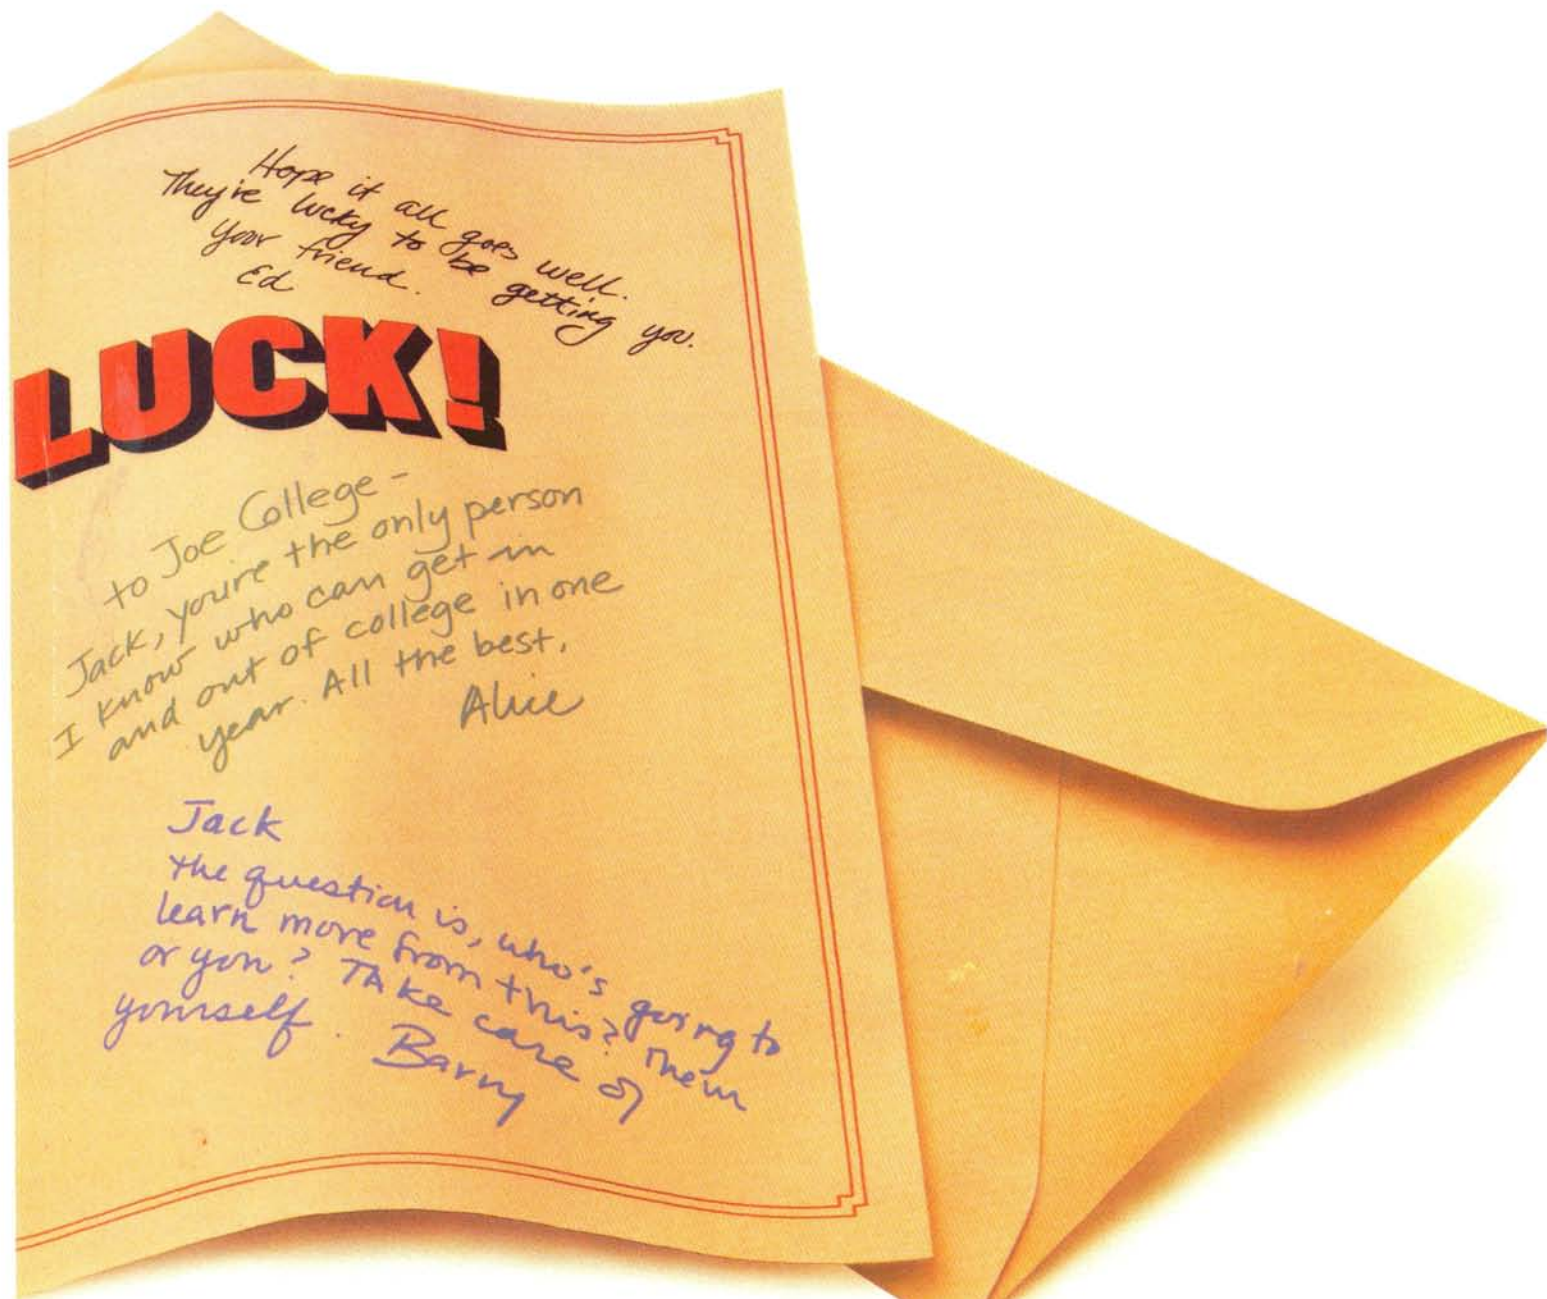 Hope it all goes well.
They're lucky to be getting you.
Your friend.
Ed
LUCK!
to Joe College -
Jack, you're the only person
I know who can get in
and out of college in one
year. All the best,
Alice
Jack
the question is, who's going to
learn more from this? Them
or you? TAke care of
yourself.
Barry